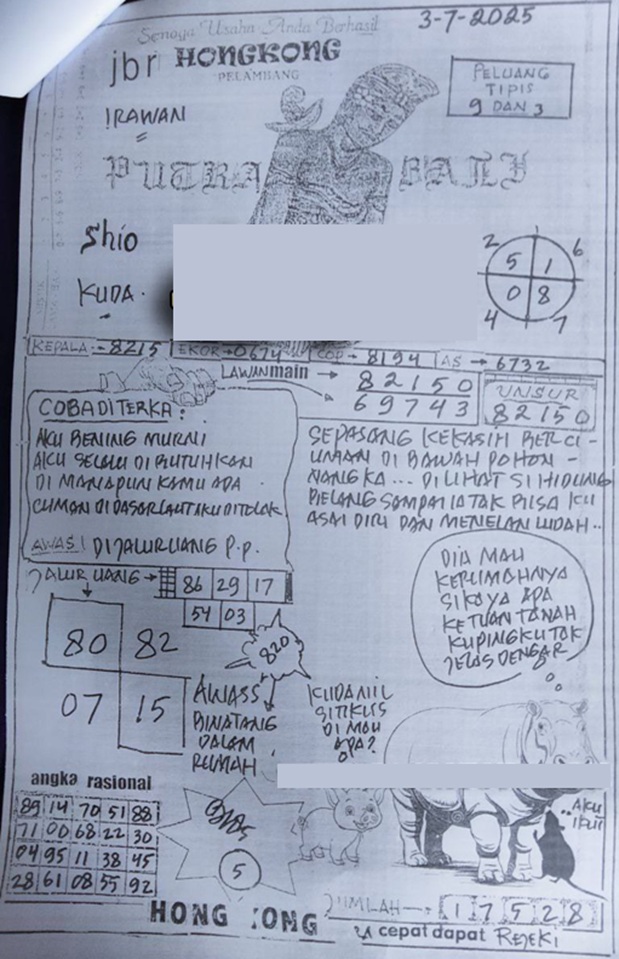 Semoga Usaha Anda Berhasil
3-7-2025
jbr HONGKONG
PELAMBANG
IRAWAN
PELUANG
TIPIS
9 DAN 3
PUTRA BALI
Shio
KUDA.
2 6
5 1
0 8
4 7
KEPALA - 8215 EKOR → 0674 COP → 8194 AS → 6732
LAWAN main → 82150
69743
UNSUR
82150
COBA DITERKA:
AKU BENING MURNI
AKU SELALU DI BUTUHKAN
DI MANAPUN KAMU ADA
CUMAN DI DASAR LAUT AKU DITOLAK
AWAS! DIJALUR UANG P.P.
SEPASANG KEKASIH BERCI -
UMAN DI BAWAH POHON -
NANGKA ... DI LIHAT SI HIDUNG
BELANG SAMPAI IA TAK BISA KU
ASAI DIRI DAN MENELAN LUDAH..
JALUR UANG → 86 29 17
54 03
80 82
07 15
820
AWASS
BINATANG
DALAM
RUMAH
DIA MAU
KERUMAHNYA
SIKAYA APA
KETUAN TANAH
KUPINGKU TAK
JELAS DENGAR
KUDANIL
SITIKUS
DI MAU
APA?
..AKU
IKUT
angka rasional
89 14 70 51 88
71 00 68 22 30
04 95 11 38 45
28 61 08 55 92
5
HONG KONG
JUMLAH → 1 7 5 2 8
cepat dapat REJEKI